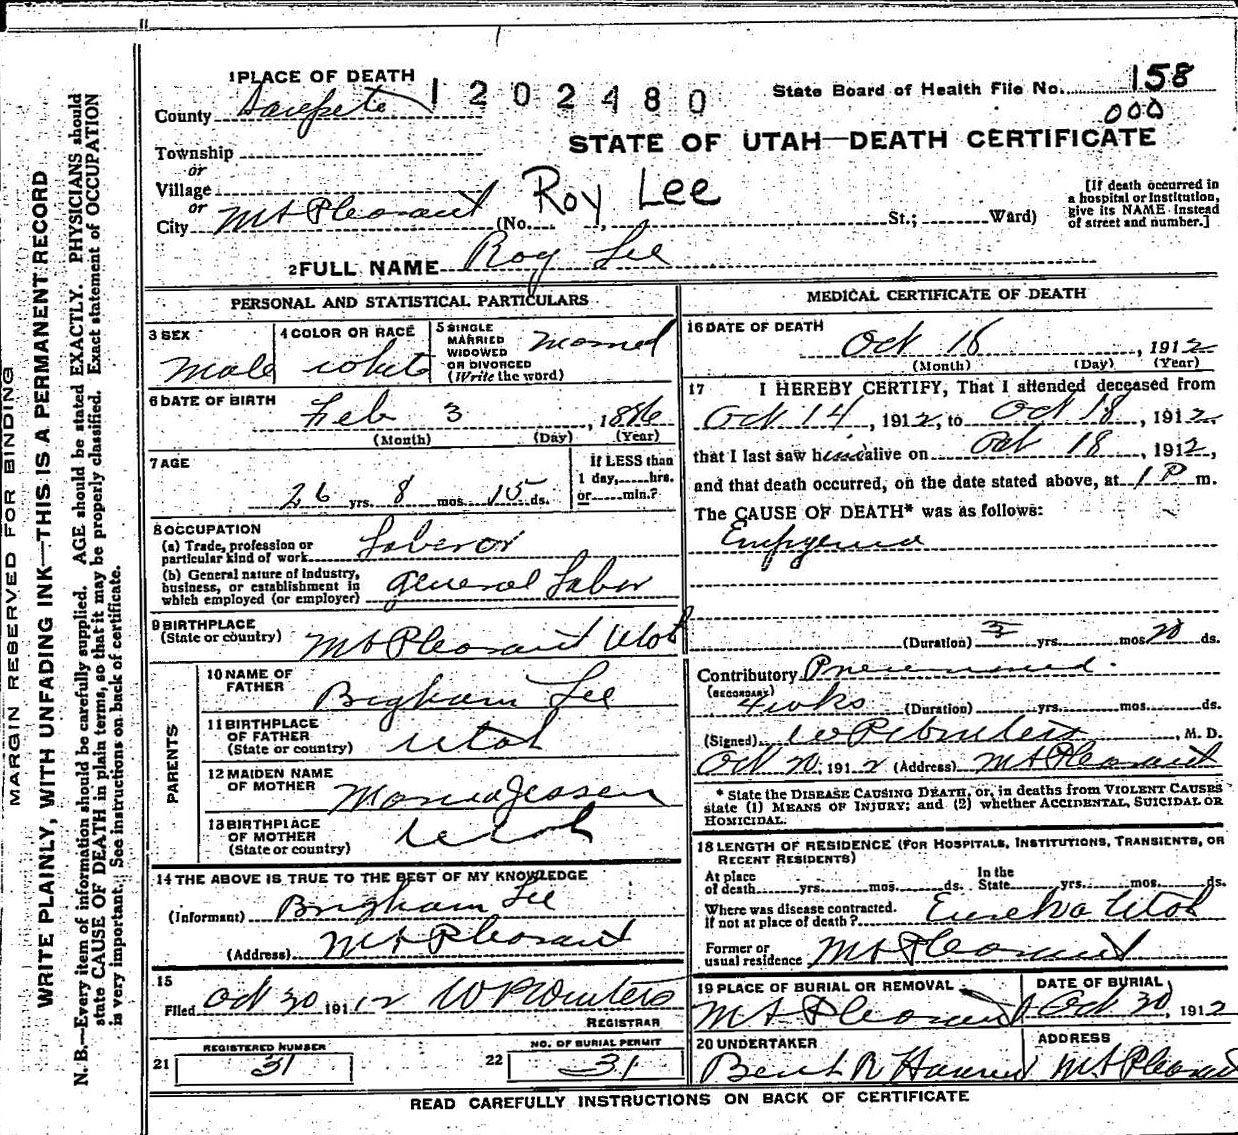 1 PLACE OF DEATH
1202480
State Board of Health File No. 158
000
County Sanpete
STATE OF UTAH—DEATH CERTIFICATE
Township
or
Village
or
City Mt Pleasant (No. , St.; Ward)
Roy Lee
[If death occurred in
a hospital or institution,
give its NAME instead
of street and number.]
2 FULL NAME Roy Lee
PERSONAL AND STATISTICAL PARTICULARS
3 SEX
Male
4 COLOR OR RACE
white
5 SINGLE
MARRIED
WIDOWED
OR DIVORCED
(Write the word)
Married
6 DATE OF BIRTH
Feb 3, 1886
(Month) (Day) (Year)
7 AGE
26 yrs. 8 mos. 15 ds.
If LESS than
1 day, hrs.
or min.?
8 OCCUPATION
(a) Trade, profession or
particular kind of work Laboror
(b) General nature of industry,
business, or establishment in
which employed (or employer) General Labor
9 BIRTHPLACE
(State or country) Mt Pleasant Utah
PARENTS
10 NAME OF
FATHER Brigham Lee
11 BIRTHPLACE
OF FATHER
(State or country) Utah
12 MAIDEN NAME
OF MOTHER Jessen
13 BIRTHPLACE
OF MOTHER
(State or country) Utah
14 THE ABOVE IS TRUE TO THE BEST OF MY KNOWLEDGE
(Informant) Brigham Lee
(Address) Mt Pleasant
15
Filed Oct 20 1912 W P Winters
REGISTRAR
REGISTERED NUMBER
21 31
NO. OF BURIAL PERMIT
22 31
MEDICAL CERTIFICATE OF DEATH
16 DATE OF DEATH
Oct 18, 1912
(Month) (Day) (Year)
17 I HEREBY CERTIFY, That I attended deceased from
Oct 14, 1912, to Oct 18, 1912,
that I last saw him alive on Oct 18, 1912,
and that death occurred, on the date stated above, at 1 P m.
The CAUSE OF DEATH* was as follows:
Empyema
(Duration) yrs. mos. 20 ds.
Contributory
(SECONDARY)
4 wks (Duration) yrs. mos. ds.
(Signed) W P Winters, M. D.
Oct 20, 1912 (Address) Mt Pleasant
* State the DISEASE CAUSING DEATH, or, in deaths from VIOLENT CAUSES
state (1) MEANS OF INJURY; and (2) whether ACCIDENTAL, SUICIDAL OR
HOMICIDAL.
18 LENGTH OF RESIDENCE (FOR HOSPITALS, INSTITUTIONS, TRANSIENTS, OR
RECENT RESIDENTS)
At place
of death yrs. mos. ds.
In the
State yrs. mos. ds.
Where was disease contracted.
if not at place of death? Eureka Utah
Former or
usual residence Mt Pleasant
19 PLACE OF BURIAL OR REMOVAL
Mt Pleasant
DATE OF BURIAL
Oct 20, 1912
20 UNDERTAKER
Bent R Hansen
ADDRESS
Mt Pleasant
READ CAREFULLY INSTRUCTIONS ON BACK OF CERTIFICATE
MARGIN RESERVED FOR BINDING
WRITE PLAINLY, WITH UNFADING INK—THIS IS A PERMANENT RECORD
N. B.—Every item of information should be carefully supplied. AGE should be stated EXACTLY. PHYSICIANS should
state CAUSE OF DEATH in plain terms, so that it may be properly classified. Exact statement of OCCUPATION
is very important. See instructions on back of certificate.